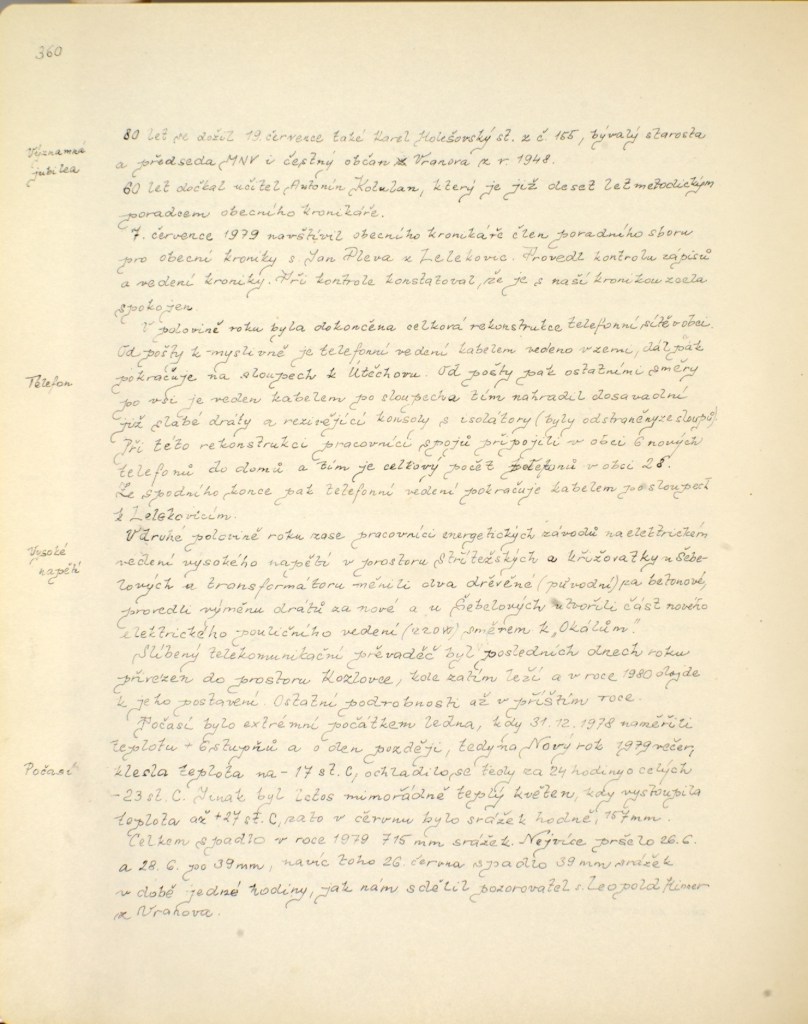 360
Významná
jubilea
80 let se dožil 19. července také Karel Holešovský st. z č. 155, bývalý starosta
a předseda MNV i čestný občan z Vranova z r. 1948.
60 let dočkal učitel Antonín Kolulan, který je již deset let metodickým
poradcem obecního kronikáře.
7. července 1979 navštívil obecního kronikáře člen poradního sboru
pro obecní kroniky s. Jan Pleva z Lelekovic. Provedl kontrolu zápisů
a vedení kroniky. Při kontrole konstatoval, že je s naší kronikou zcela
spokojen.
V polovině roku byla dokončena celková rekonstrukce telefonní sítě v obci.
Od pošty k myslivně je telefonní vedení kabelem vedeno v zemi, dál pak
Telefon
pokračuje na sloupech k Útěchovu. Od pošty pak ostatními směry
po vsi je veden kabelem po sloupech a tím nahradil dosavadní
již slabé dráty a rezivějící konsoly s isolátory (byly odstraněny ze sloupů).
Při této rekonstrukci pracovníci spojů připojili v obci 6 nových
telefonů do domů a tím je celkový počet telefonů v obci 28.
Ze spodního konce pak telefonní vedení pokračuje kabelem po sloupech
k Lelekovicím.
Vysoké
napětí
V druhé polovině roku zase pracovníci energetických závodů na elektrickém
vedení vysokého napětí v prostoru Střítežských a křižovatky u Šebe-
lových u transformátoru měnili dva dřevěné (původní) za betonové,
provedli výměnu drátů za nové a u Šebelových utvořili část nového
elektrického pouličního vedení (220W) směrem k „Okálům".
Slíbený telekomunikační převaděč byl posledních dnech roku
přivezen do prostoru Kozlovce, kde zatím leží a v roce 1980 dojde
k jeho postavení. Ostatní podrobnosti až v příštím roce.
Počasí
Počasí bylo extrémní počátkem ledna, kdy 31. 12. 1978 naměřili
teplotu + 6 stupňů a o den později, tedy na Nový rok 1979 večer,
klesla teplota na - 17 st. C, ochladilo se tedy za 24 hodiny o celých
- 23 st. C. Jinak byl letos mimořádně teplý květen, kdy vystoupila
teplota až +27 st. C, zato v červnu bylo srážek hodně, 157 mm.
Celkem spadlo v roce 1979 715 mm srážek. Nejvíce pršelo 26. 6.
a 28. 6. po 39 mm, navíc toho 26. června spadlo 39 mm srážek
v době jedné hodiny, jak nám sdělil pozorovatel s. Leopold
z Vranova.